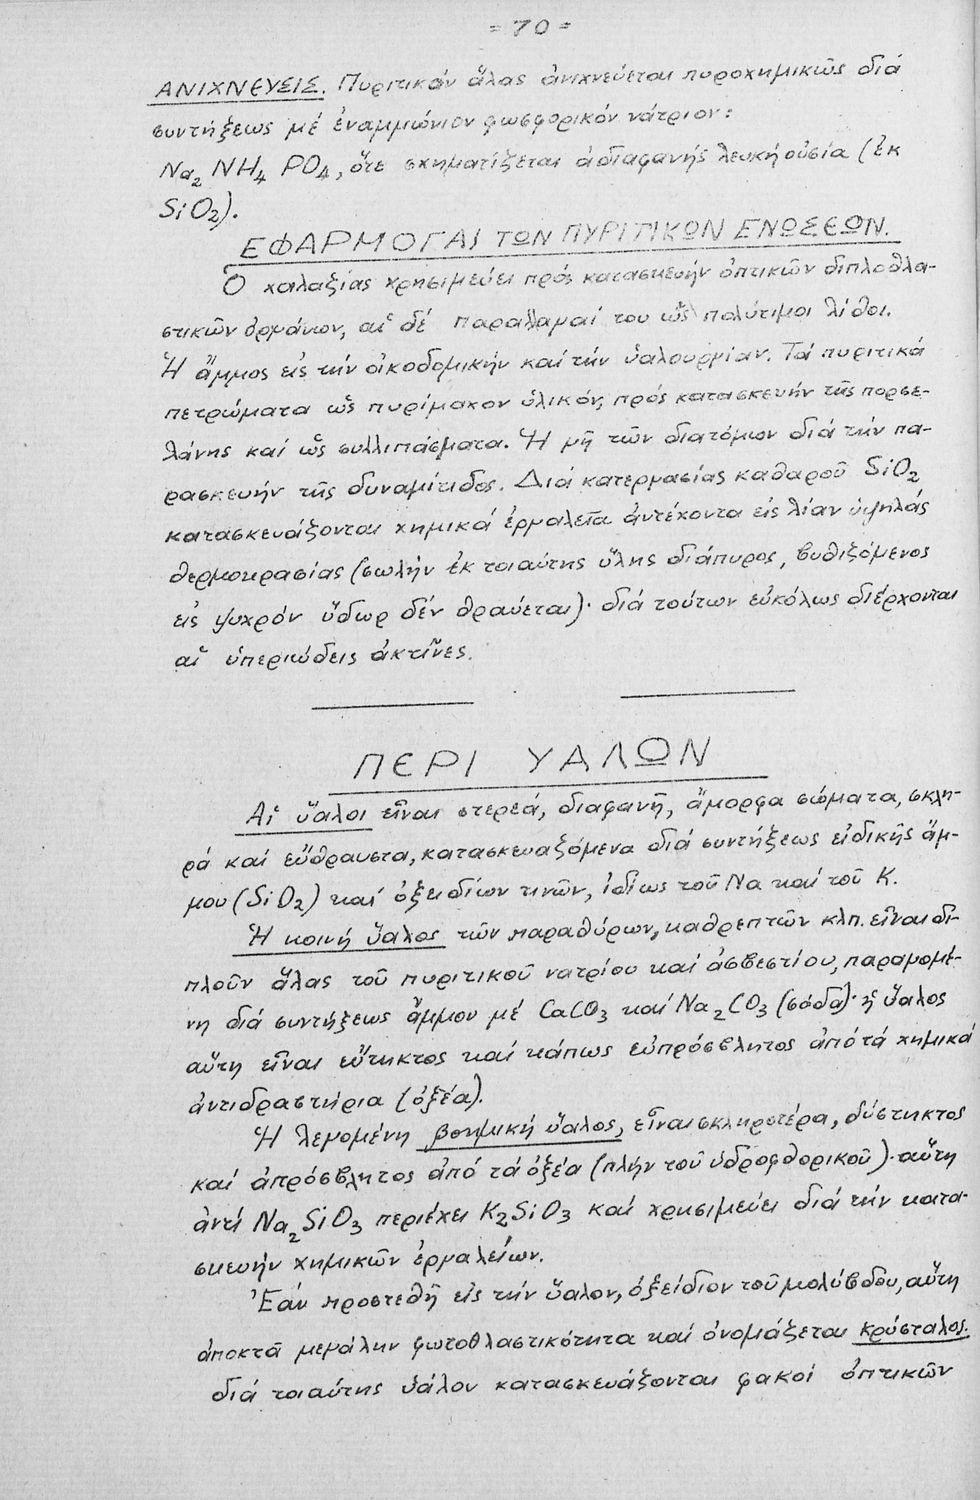 = 70 =
ΑΝΙΧΝΕΥΣΙΣ. Πυριτικόν ἅλας ἀνιχνεύεται πυροχημικῶς διά
συντήξεως μέ ἐναμμώνιον φωσφορικόν νάτριον:
Na₂ NH₄ PO₄, ὅτε σχηματίζεται ἀδιαφανής λευκή οὐσία (ἐκ
SiO₂).
ΕΦΑΡΜΟΓΑΙ ΤΩΝ ΠΥΡΙΤΙΚΩΝ ΕΝΩΣΕΩΝ.
Ὁ χαλαζίας χρησιμεύει πρός κατασκευήν ὀπτικῶν διπλοθλα-
στικῶν ὀργάνων, αἱ δέ παραλλαγαί του ὡς πολύτιμοι λίθοι.
Ἡ ἄμμος εἰς τήν οἰκοδομικήν καί τήν ὑαλουργίαν. Τά πυριτικά
πετρώματα ὡς πυρίμαχον ὑλικόν, πρός κατασκευήν τῆς πορσε-
λάνης καί ὡς συλλιπάσματα. Ἡ γῆ τῶν διατόμων διά τήν πα-
ρασκευήν τῆς δυναμίτιδος. Διά κατεργασίας καθαροῦ SiO₂
κατασκευάζονται χημικά ἐργαλεῖα ἀντέχοντα εἰς λίαν ὑψηλάς
θερμοκρασίας (σωλήν ἐκ τοιαύτης ὕλης διάπυρος, βυθιζόμενος
εἰς ψυχρόν ὕδωρ δέν θραύεται)· διά τούτων εὐκόλως διέρχονται
αἱ ὑπεριώδεις ἀκτῖνες.
ΠΕΡΙ ΥΑΛΩΝ
Αἱ ὕαλοι εἶναι στερεά, διαφανῆ, ἄμορφα σώματα, σκλη-
ρά καί εὔθραυστα, κατασκευαζόμενα διά συντήξεως εἰδικῆς ἄμ-
μου (SiO₂) καί ὀξειδίων τινῶν, ἰδίως τοῦ Na καί τοῦ K.
Ἡ κοινή ὕαλος τῶν παραθύρων, καθρεπτῶν κλπ. εἶναι δι-
πλοῦν ἅλας τοῦ πυριτικοῦ νατρίου καί ἀσβεστίου, παραγομέ-
νη διά συντήξεως ἄμμου μέ CaCO₃ καί Na₂CO₃ (σόδα)· ἡ ὕαλος
αὕτη εἶναι εὔτηκτος καί κάπως εὐπρόσβλητος ἀπό τά χημικά
ἀντιδραστήρια (ὀξέα).
Ἡ λεγομένη βοημική ὕαλος, εἶναι σκληροτέρα, δύστηκτος
καί ἀπρόσβλητος ἀπό τά ὀξέα (πλήν τοῦ ὑδροφθορικοῦ)· αὕτη
ἀντί Na₂SiO₃ περιέχει K₂SiO₃ καί χρησιμεύει διά τήν κατα-
σκευήν χημικῶν ἐργαλείων.
Ἐάν προστεθῇ εἰς τήν ὕαλον, ὀξείδιον τοῦ μολύβδου, αὕτη
ἀποκτᾶ μεγάλην φωτοθλαστικότητα καί ὀνομάζεται κρύσταλος.
διά τοιαύτης ὑάλου κατασκευάζονται φακοί ὀπτικῶν